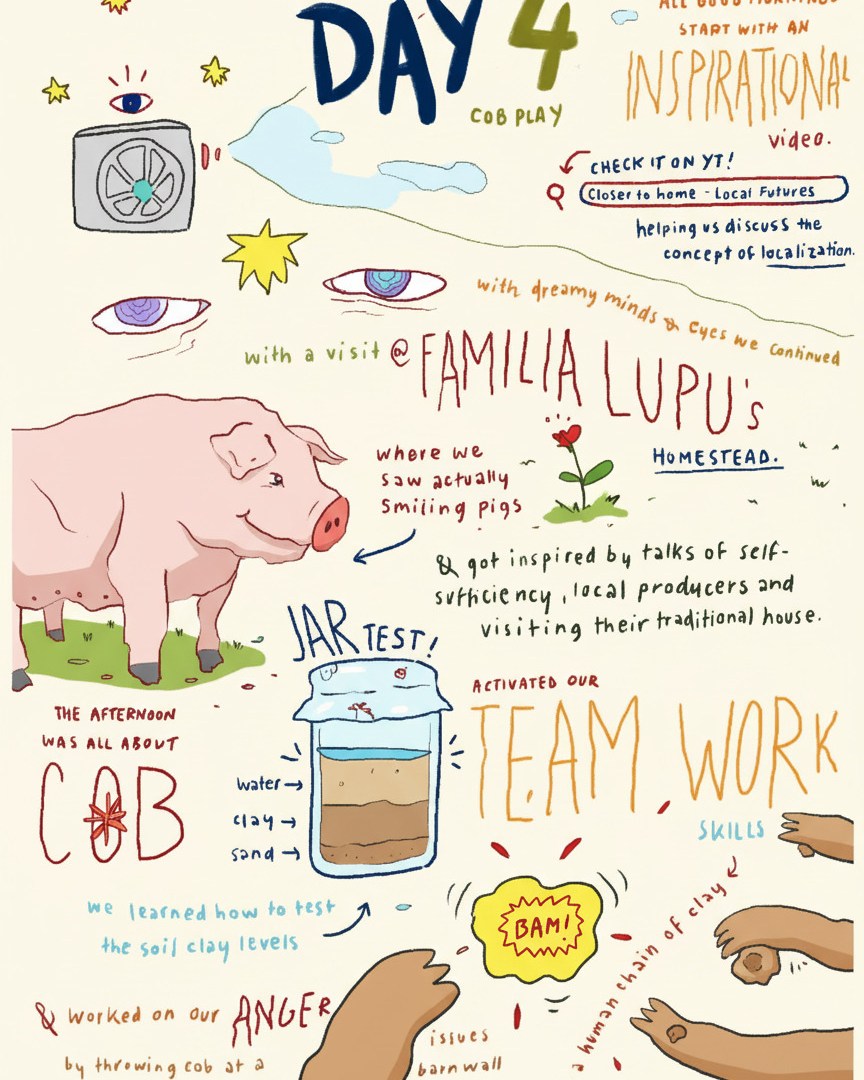 DAY 4
COB PLAY
ALL GOOD MORNINGS
START WITH AN
INSPIRATIONAL
video.
CHECK IT ON YT!
Closer to home - Local Futures
helping us discuss the
concept of localization.
with dreamy minds & eyes we continued
with a visit @ FAMILIA LUPU's
HOMESTEAD.
where we
saw actually
smiling pigs
& got inspired by talks of self-
sufficiency, local producers and
visiting their traditional house.
JAR TEST!
THE AFTERNOON
WAS ALL ABOUT
COB
water →
clay →
sand →
we learned how to test
the soil clay levels
ACTIVATED OUR
TEAM WORK
SKILLS
a human chain of clay
BAM!
& worked on our ANGER
issues
by throwing cob at a
barn wall